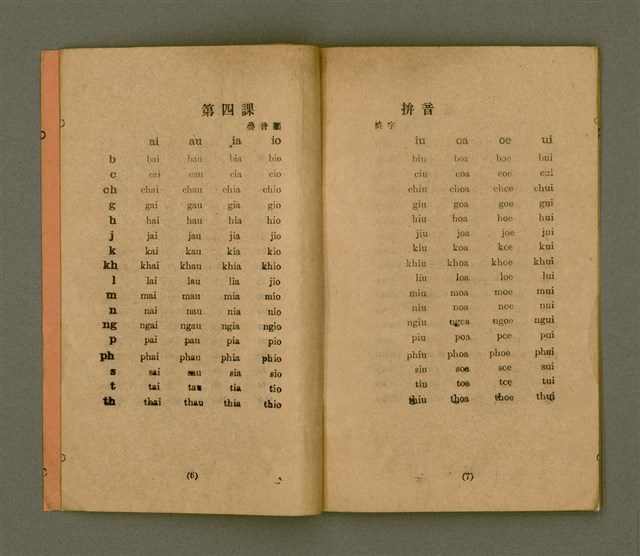 第四課
ai au ia io
b bai bau bia bio
c cai cau cia cio
ch chai chau chia chio
g gai gau gia gio
h hai hau hia hio
j jai jau jia jio
k kai kau kia kio
kh khai khau khia khio
l lai lau lia jio
m mai mau mia mio
n nai nau nia nio
ng ngai ngau ngia ngio
p pai pau pia pio
ph phai phau phia phio
s sai sau sia sio
t tai tau tia tio
th thai thau thia thio
(6)
拚音
iu oa oe ui
biu boa boe bui
ciu coa coe cui
chiu choa choe chui
giu goa goe gui
hiu hoa hoe hui
jiu joa joe jui
kiu koa koe kui
khiu khoa khoe khui
liu loa loe lui
miu moa moe mui
niu noa noe nui
ngiu ngoa ngoe ngui
piu poa poe pui
phiu phoa phoe phui
siu soa soe sui
tiu toa toe tui
thiu thoa thoe thui
(7)